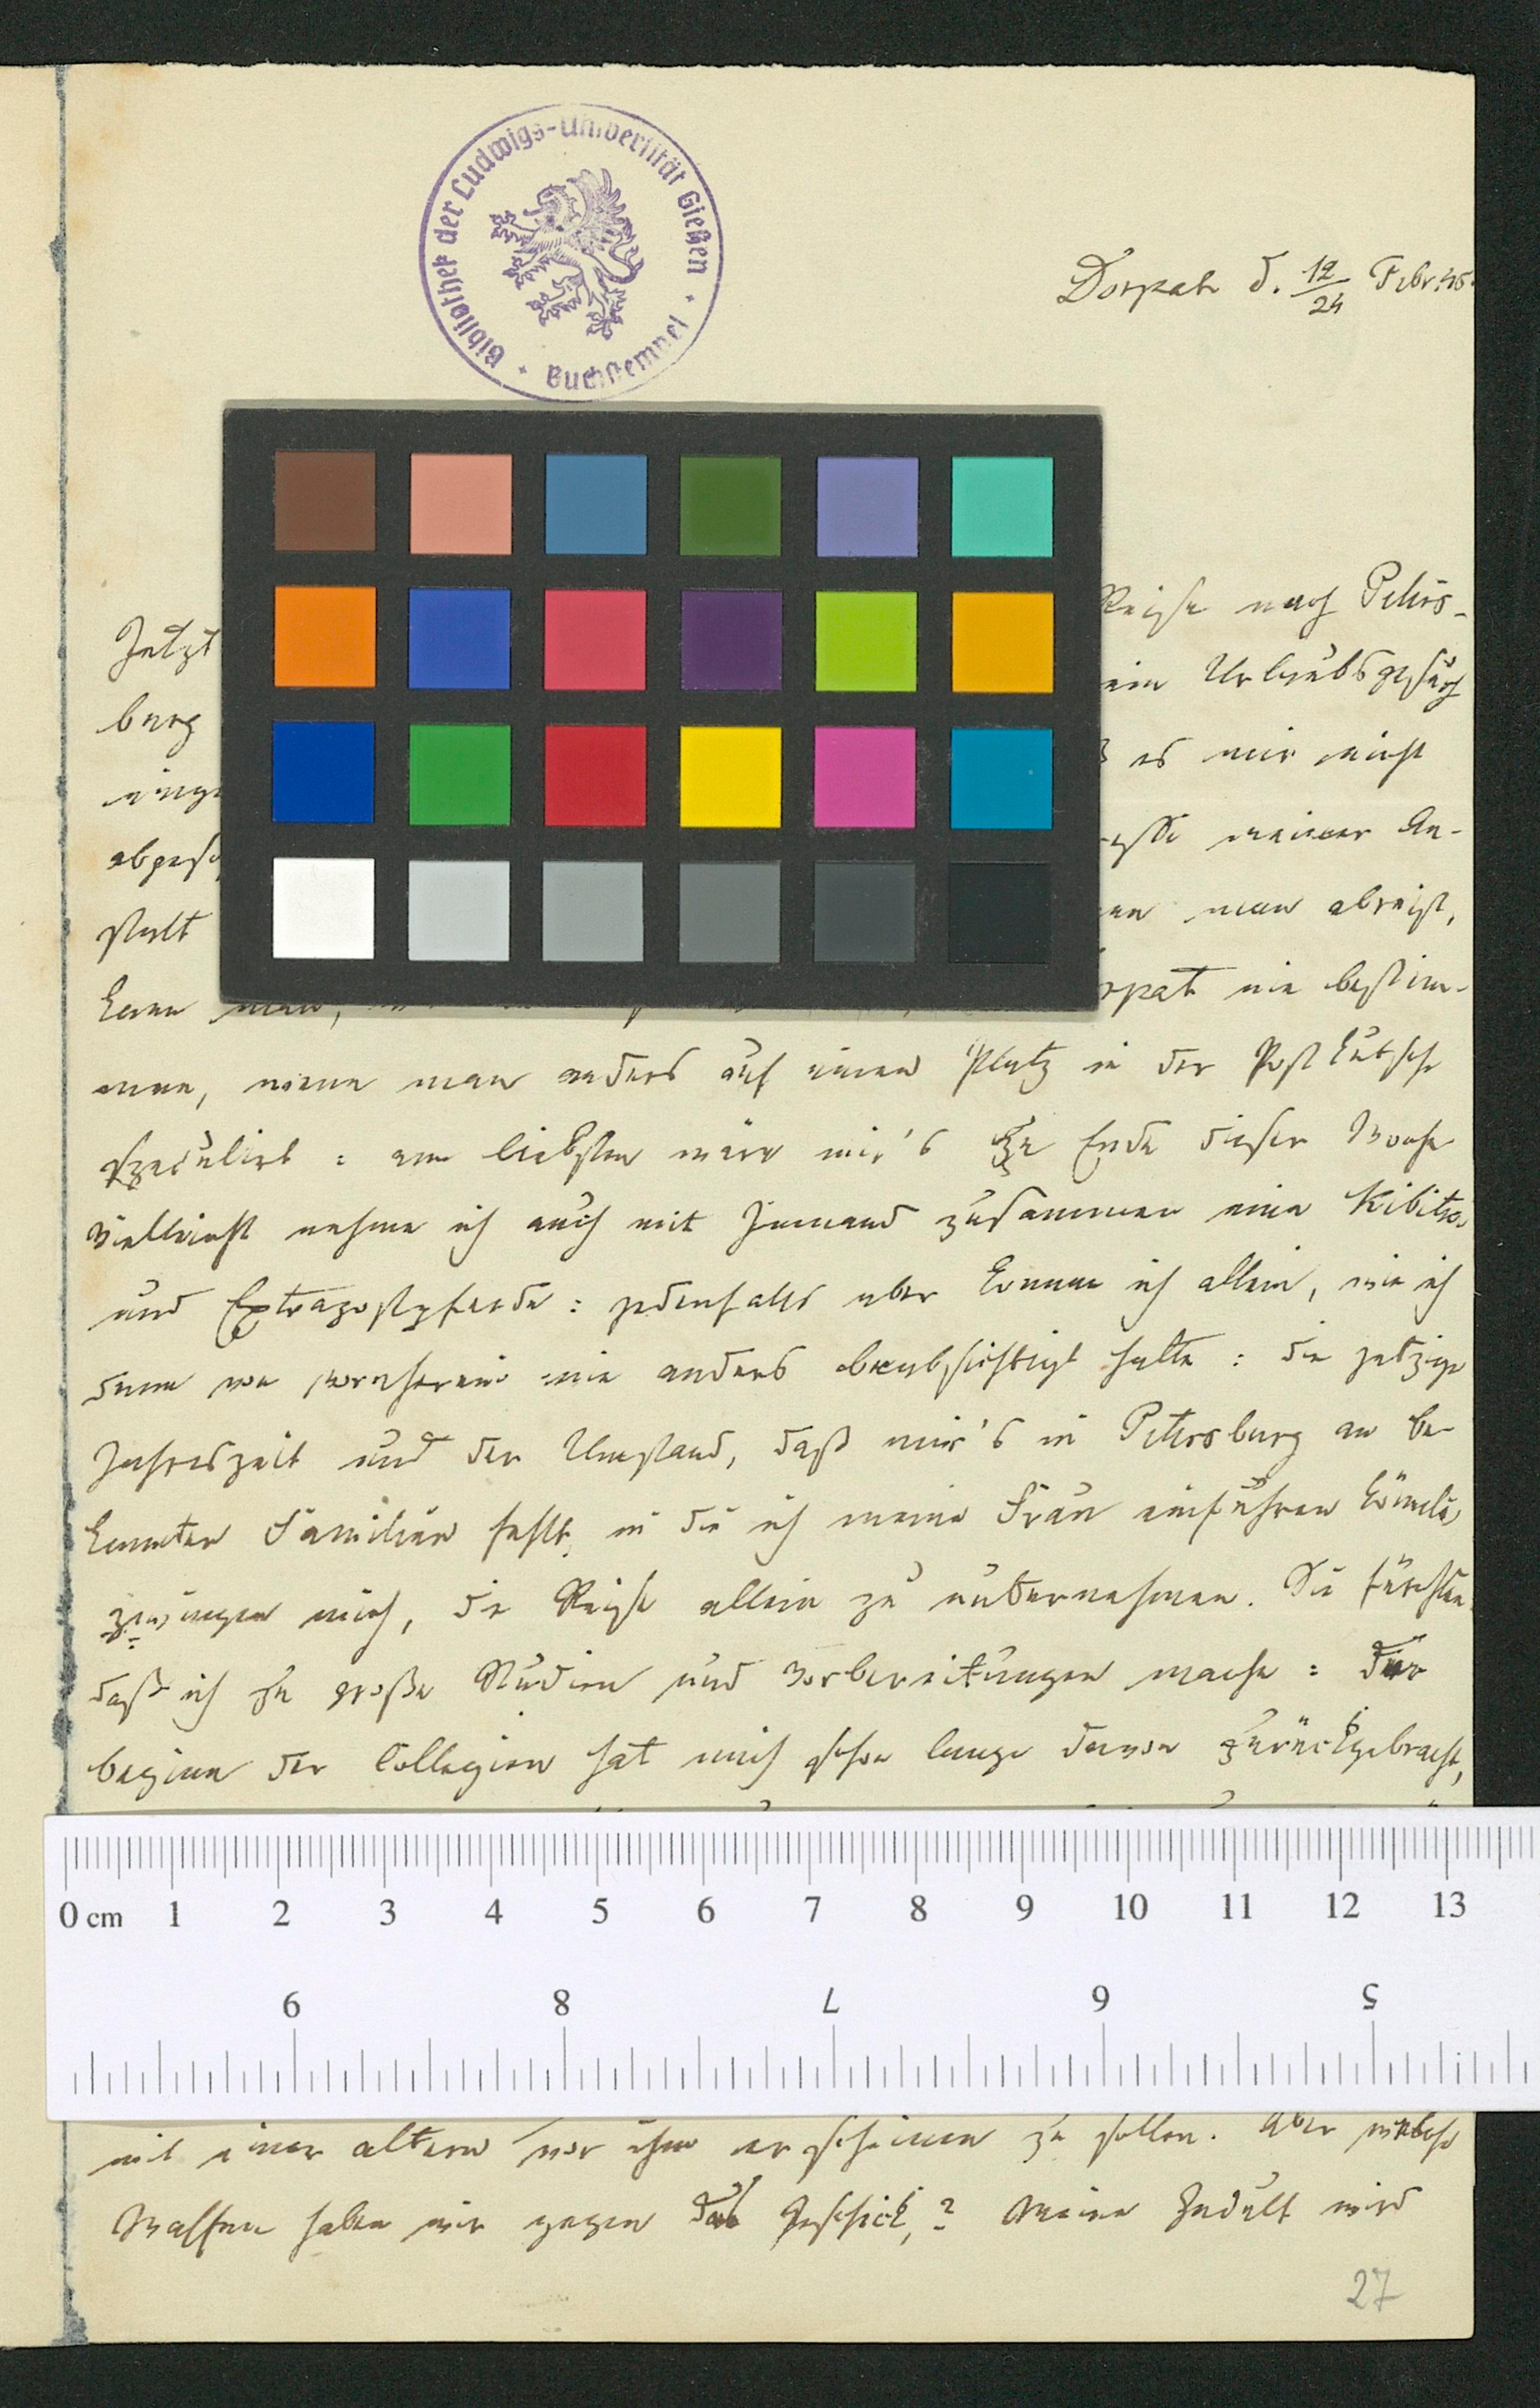 Bibliothek der Ludwigs-Universität Gießen
Buchstempel
Dorpat d. 12/24 Febr. 46.
Jetzt Reise nach Peters-
burg ein Urlaubsgesuch
einge es mir nicht
abgesch meiner An-
stalt man abreist,
kann man, rpat nie bestim-
men, wenn man anders auf einen Platz in der Postkutsche
speculirt: am liebsten wäre mir's Ende dieser Woche
Vielleicht nehme ich auch mit Jemand zusammen eine Kibitke
und Extrapostpferde: jedenfalls aber komme ich allein, wie ich
denn von vornherein nie anders beabsichtigt hatte: die jetzige
Jahreszeit und der Umstand, daß mir's in Petersburg an be-
kannten Familien fehlt, in die ich meine Frau einführen könnte,
zwingen mich, die Reise allein zu unternehmen. Sie fürchten
daß ich zu große Studien und Vorbereitungen mache: der
beginn der Collegien hat mich schon lange davon zurückgebracht,
0 cm 1 2 3 4 5 6 7 8 9 10 11 12 13
9 8 7 6 5
mit einer ältern vor ihm erscheinen zu sollen. Aber welche
Waffen haben wir gegen das Geschick,? Meine Gedult wird
27